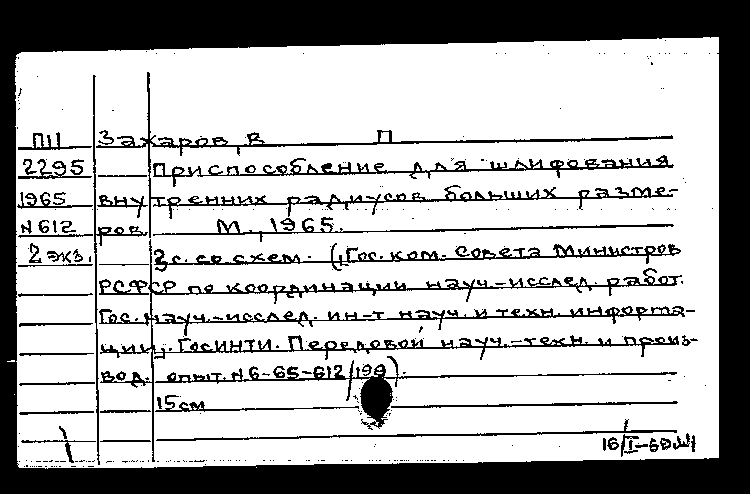 П11 Захаров, В П
2295 Приспособление для шлифования
1965 внутренних радиусов больших разме-
N612 ров. М., 1965.
2 экз. 3с. со схем. (Гос. ком. Совета Министров
РСФСР по координации науч.-исслед. работ.
Гос. науч.-исслед. ин-т науч. и техн. информа-
ции. ГОСИНТИ. Передовой науч.-техн. и произ-
вод. опыт. N6-65-612/199).
15см